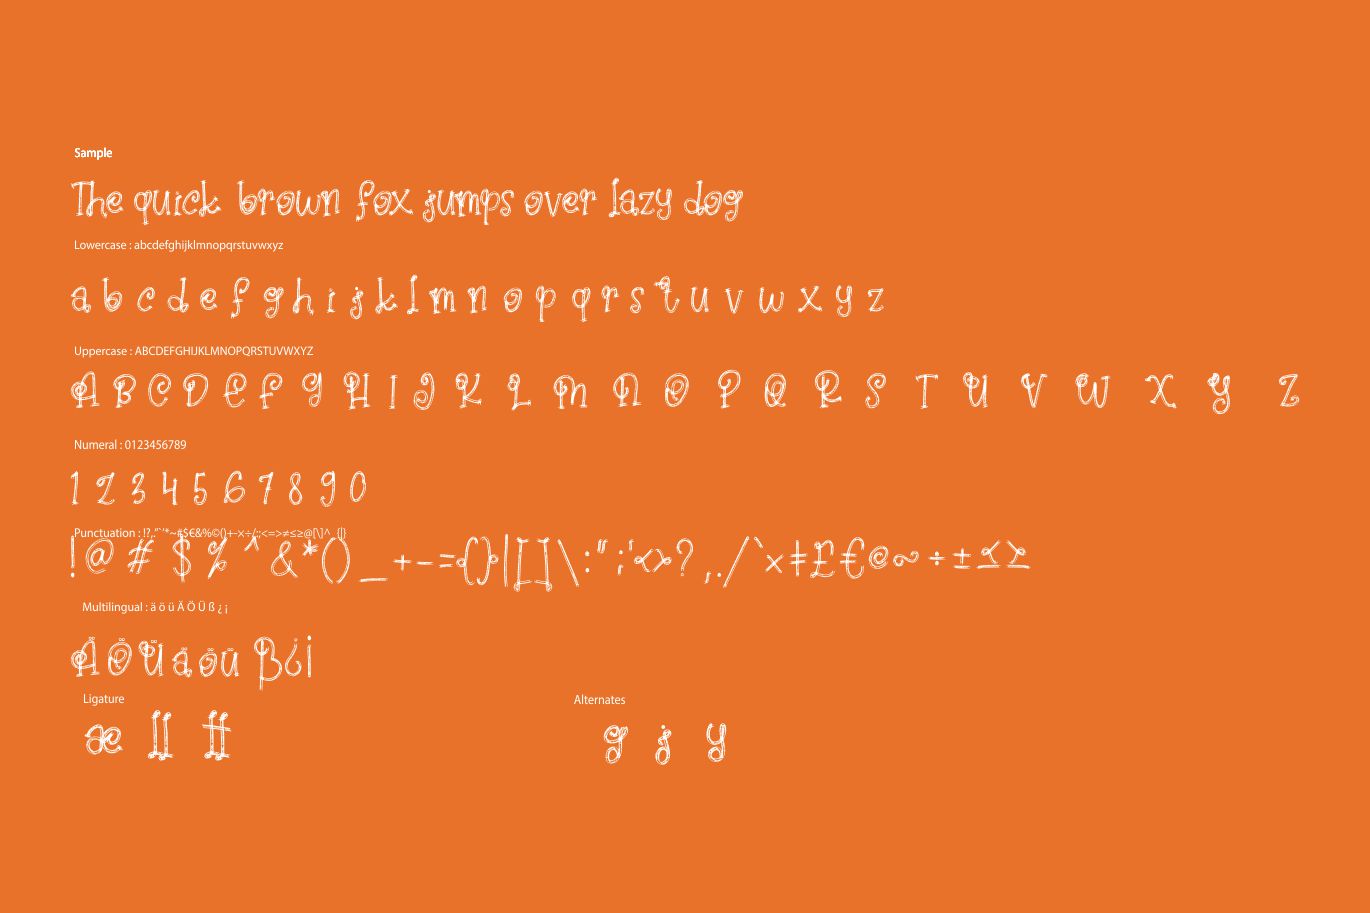 Sample
The quick brown fox jumps over lazy dog
Lowercase : abcdefghijklmnopqrstuvwxyz
a b c d e f g h i j k l m n o p q r s t u v w x y z
Uppercase : ABCDEFGHIJKLMNOPQRSTUVWXYZ
A B C D E F G H I J K L M N O P Q R S T U V W X Y Z
Numeral : 0123456789
1 2 3 4 5 6 7 8 9 0
Punctuation : !?,.”`'*~#$€&%©()+-×÷/:;<=>≠≤≥@[\]^_{|}
! @ # $ % ^ & * ( ) _ + - = { } | [ ] \ : " ; ' < > ? , . / ` × ≠ £ € © ~ ÷ ± ≤ ≥
Multilingual : ä ö ü Ä Ö Ü ß ¿ ¡
Ä Ö Ü ä ö ü ß ¿ ¡
Ligature
æ ll tt
Alternates
g j y